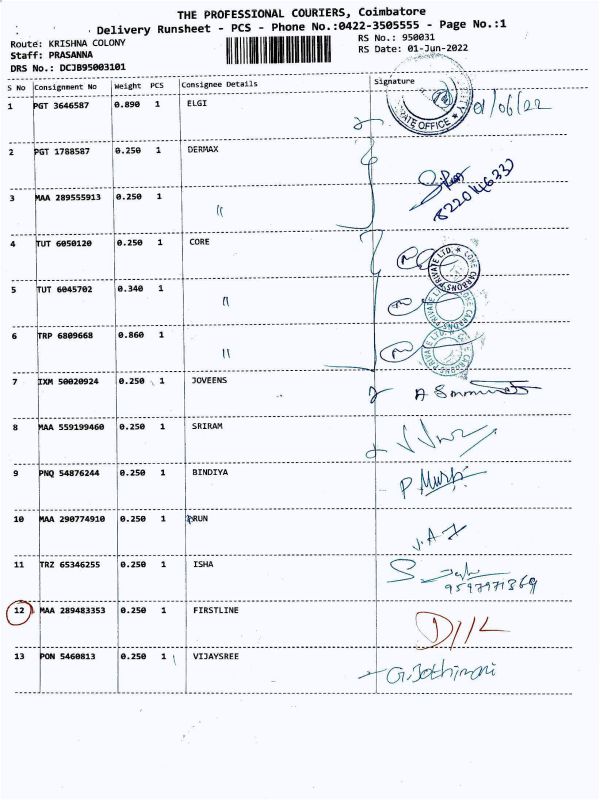 THE PROFESSIONAL COURIERS, Coimbatore
Delivery Runsheet - PCS - Phone No.:0422-3505555 - Page No.:1
Route: KRISHNA COLONY RS No.: 950031
Staff: PRASANNA RS Date: 01-Jun-2022
DRS No.: DCJB95003101
S No Consignment No Weight PCS Consignee Details Signature
1 PGT 3646587 0.890 1 ELGI 01/06/22
2 PGT 1788587 0.250 1 DERMAX
3 MAA 289555913 0.250 1 "
4 TUT 6050120 0.250 1 CORE
5 TUT 6045702 0.340 1 "
6 TRP 6809668 0.860 1 "
7 IXM 50020924 0.250 1 JOVEENS
8 MAA 559199460 0.250 1 SRIRAM
9 PNQ 54876244 0.250 1 BINDIYA
10 MAA 290774910 0.250 1 RUN
11 TRZ 65346255 0.250 1 ISHA
12 MAA 289483353 0.250 1 FIRSTLINE
13 PON 5460813 0.250 1 VIJAYSREE G. Jothimani